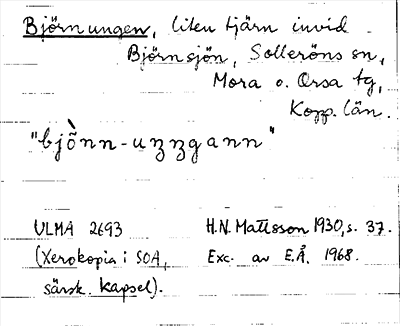 Björnungen, liten tjärn invid
Björnsjön, Solleröns sn,
Mora o. Orsa tg,
Kopp. län.
"bjònn-uʒʒgann"
ULMA 2693 H.N. Mattsson 1930, s. 37.
(Xerokopia i SOA, Exc. av E.Å. 1968.
särsk. kapsel).